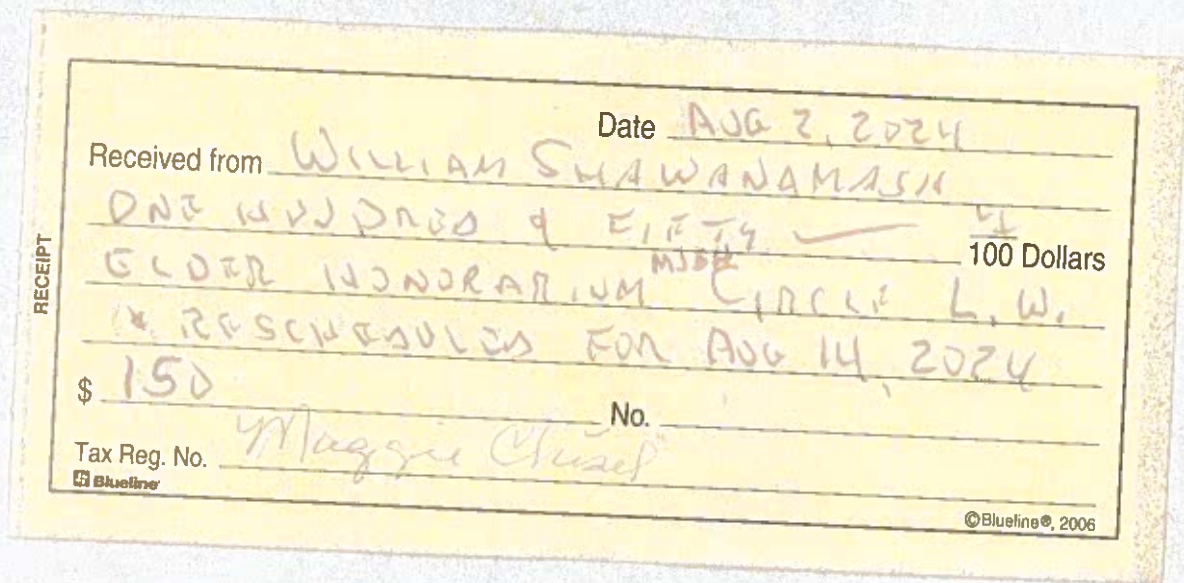 RECEIPT
Date AUG 2, 2024
Received from WILLIAM SHAWANAMASH
ONE HUNDRED & FIFTY — 100 Dollars
ELDER HONORARIUM CIRCLE L.W.
* RESCHEDULED FOR AUG 14, 2024
$ 150 No.
Tax Reg. No. Maggie
Blueline
©Blueline®, 2006